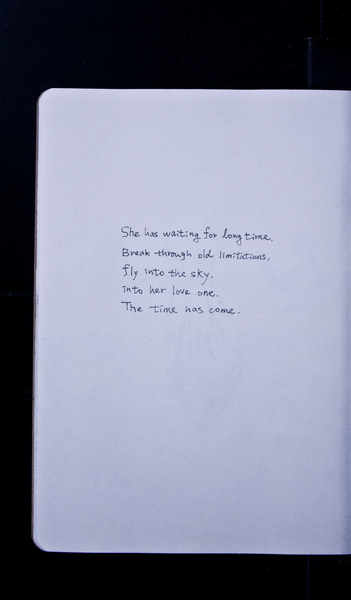 She has waiting for long time.
Break through old limitations,
fly into the sky.
into her love one.
The time has come.